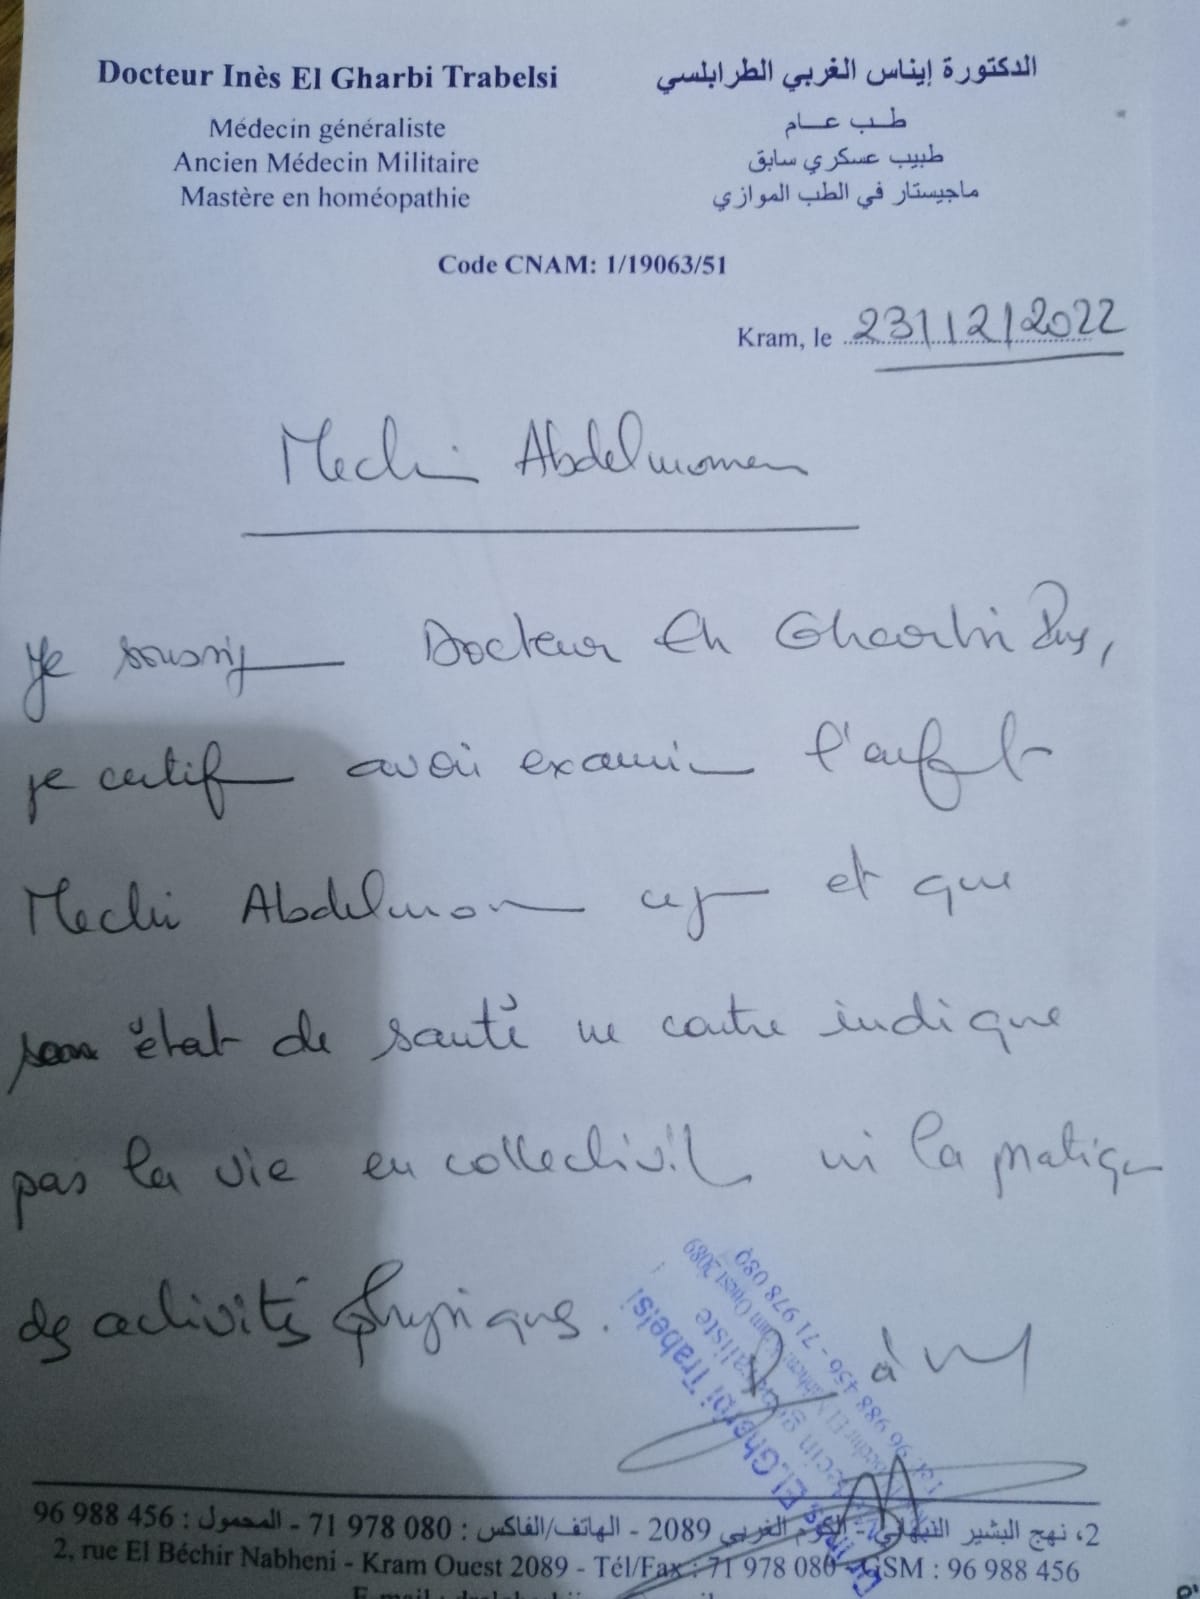 Docteur Inès El Gharbi Trabelsi
Médecin généraliste
Ancien Médecin Militaire
Mastère en homéopathie
الدكتورة إيناس الغربي الطرابلسي
طب عام
طبيب عسكري سابق
ماجيستار في الطب الموازي
Code CNAM: 1/19063/51
Kram, le 23/12/2022
Mechi Abdelmomen
Je soussigné Docteur El Gharbi Inès,
je certifie avoir examiné l'enfant
Mechi Abdelmomen ce jour et que
son état de santé ne contre indique
pas la vie en collectivité ni la pratique
des activités physiques.
El Gharbi Trabelsi
71 978 080
96 988 456
2، نهج البشير النبهاني - الكرم الغربي 2089 - الهاتف/الفاكس : 080 978 71 - المحمول : 456 988 96
2, rue El Béchir Nabheni - Kram Ouest 2089 - Tél/Fax : 71 978 080 - GSM : 96 988 456